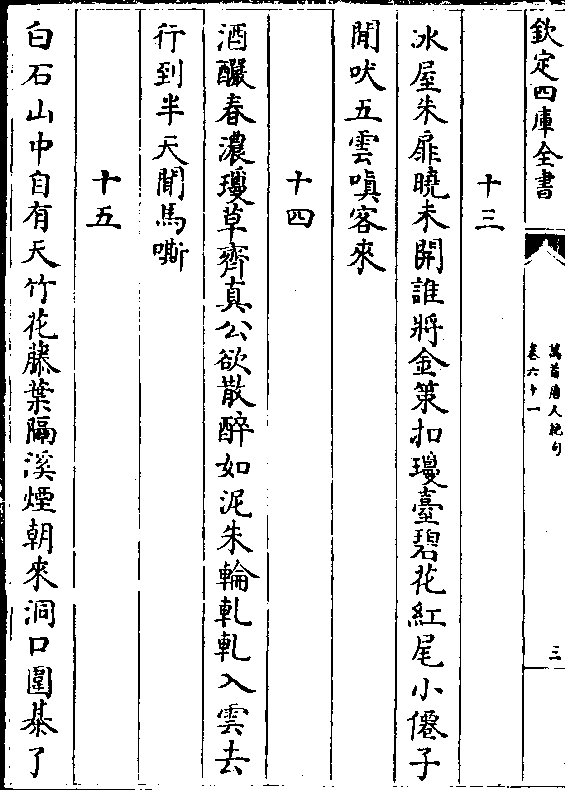 欽定四庫全書
萬首唐人絶句
卷六十一
三
十三
冰屋朱扉曉未開誰將金策扣瓊臺碧花紅尾小僊子
閒吠五雲嗔客來
十四
酒釅春濃瓊草齊真公欲散醉如泥朱輪軋軋入雲去
行到半天聞馬嘶
十五
白石山中自有天竹花藤葉隔溪煙朝來洞口圍棊了